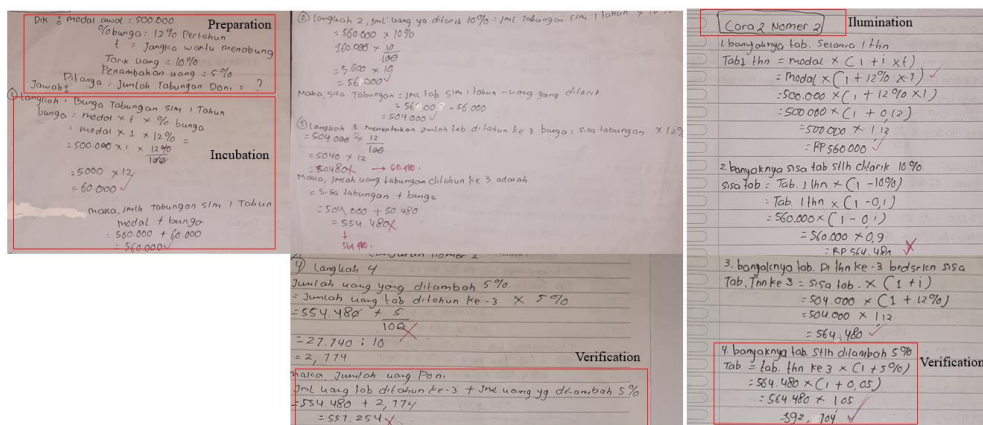 Preparation
Dik : modal awal = 500.000
% bunga = 12% Pertahun
t = Jangka waktu menabung
Tarik uang = 10%
Penambahan uang = 5%
Ditanya : Jumlah Tabungan Doni = ?
Jawab :
① Langkah 1 Bunga Tabungan slm 1 Tahun
bunga = modal × t × % bunga
= modal × 1 × 12% =
= 500.000 × 1 × 12%
100
= 5000 × 12
= 60.000
Incubation
maka, Jmlh Tabungan slm 1 Tahun
modal + bunga
= 560.000 + 60.000
= 560.000
② Langkah 2, Jml uang yg ditarik 10% = Jml Tabungan slm 1 tahun × 10%
= 560.000 × 10%
560.000 × 10
100
= 5.600 × 10
= 56.000
maka, sisa Tabungan = Jml tab slm 1 tahun - uang yang ditarik
= 560.000 - 56.000
= 504.000
③ Langkah 3 menentukan Jumlah tab ditahun ke 3 bunga = sisa tabungan × 12%
= 504.000 × 12
100
= 5040 × 12
= 50480 → 60.480
maka, Jmlah uang tabungan ditahun ke 3 adalah
= sisa tabungan + bunga
= 504.000 + 50.480
= 554.480
↓
564.480
4) Langkah 4
Jumlah uang yang ditambah 5%
= Jumlah uang tab ditahun ke-3 × 5%
= 554.480 + 5
100
= 27.740 : 10
= 2,774
Verification
maka, Jumlah uang Doni
Jml uang tab ditahun ke-3 + Jml uang yg ditambah 5%
= 554.480 + 2,774
= 557.254
Ilumination
Cara 2 Nomer 2
1. banyaknya tab. Selama 1 thn
Tab 1 thn = modal × (1 + i × t)
= modal × (1 + 12% × 1)
= 500.000 × (1 + 12% × 1)
= 500.000 × (1 + 0,12)
= 500.000 × 1,12
= RP 560.000
2. banyaknya sisa tab stlh ditarik 10%
sisa tab = Tab. 1 thn × (1 - 10%)
= Tab. 1 thn × (1 - 0,1)
= 560.000 × (1 - 0,1)
= 560.000 × 0,9
= RP 564.480
3. banyaknya tab. Di thn ke-3 bedserkn sisa
Tab. Thn ke 3 = sisa tab. × (1 + i)
= 504.000 × (1 + 12%)
= 504.000 × 1,12
= 564.480
4. banyaknya tab. stlh ditambah 5%
Tab = tab. thn ke 3 × (1 + 5%)
= 564.480 × (1 + 0,05)
= 564.480 × 1,05
592.704
Verification